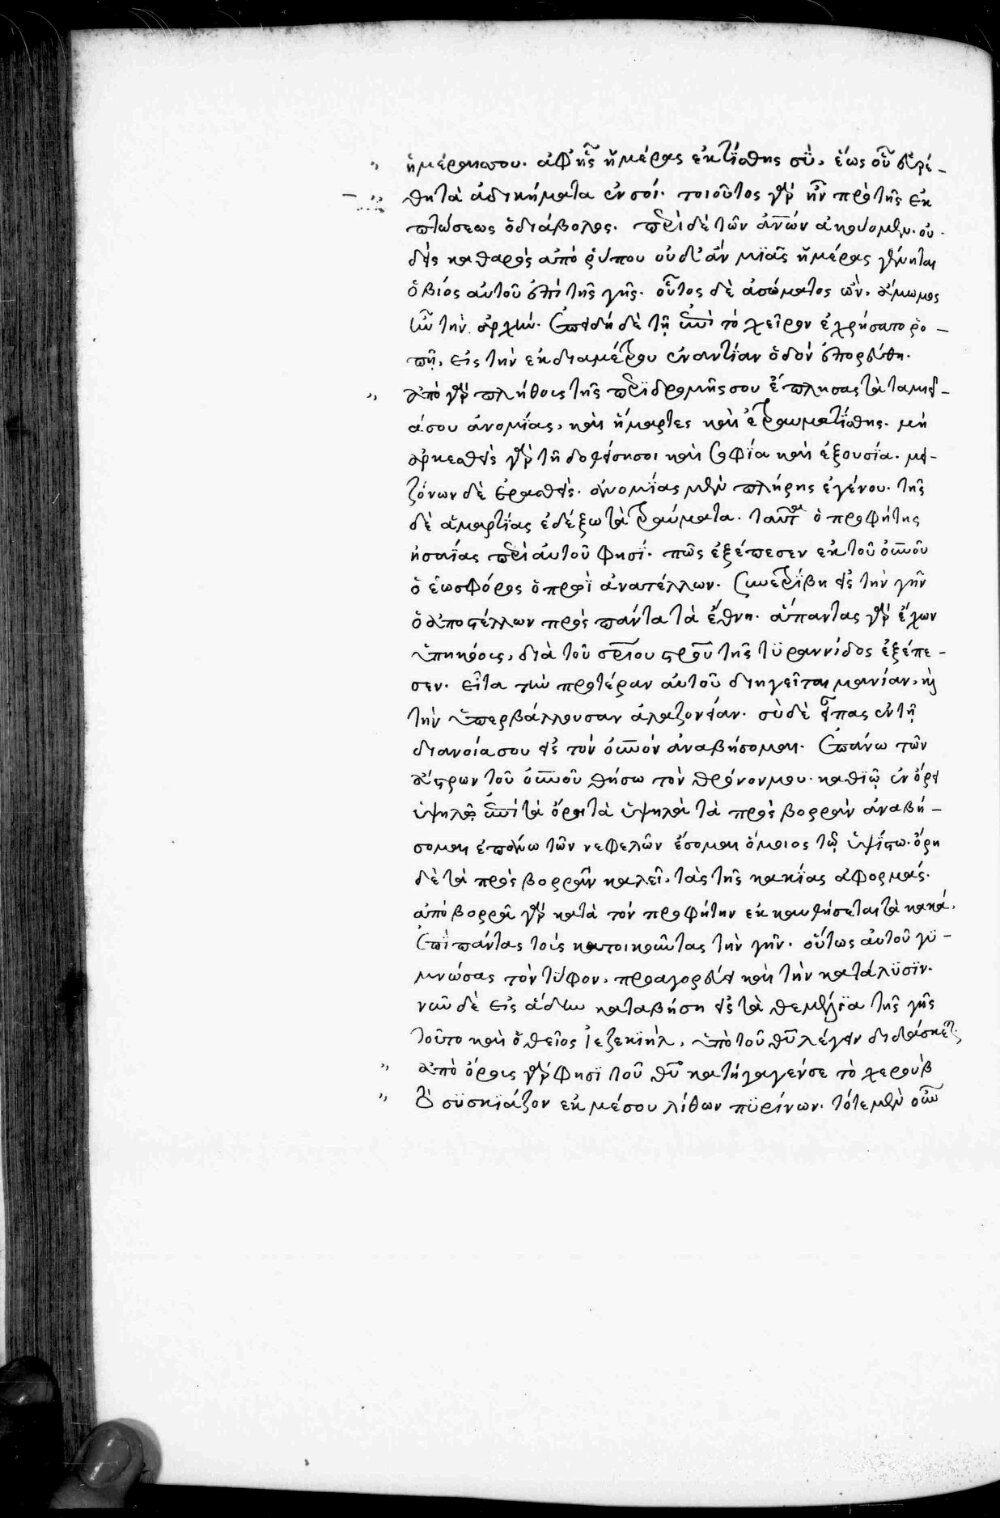 ἡμέραις σου. ἀφ' ἧς ἡμέρας ἐκτίσθης σὺ, ἕως οὗ εὑρέ-
θη τὰ ἀδικήματα ἐν σοί. τοιοῦτος γὰρ ἦν πρὸ τῆς ἐκ
πτώσεως ὁ διάβολος. περὶ δὲ τῶν ἀνῶν ἀκούομεν. οὐ
δεὶς καθαρὸς ἀπὸ ῥύπου οὐδ' ἂν μιᾶς ἡμέρας γένηται
ὁ βίος αὐτοῦ ἐπὶ τῆς γῆς. οὗτος δὲ ἀσώματος ὢν, ἄμωμος
ἦν τὴν ἀρχήν. ἐπειδὴ δὲ τῇ ἐπὶ τὸ χεῖρον ἐχρήσατο ῥο-
πῇ, εἰς τὴν ἐκ διαμέτρου ἐναντίαν ὁδὸν ἐπορεύθη.
ἀπὸ γὰρ πλήθους τῆς περιδρομῆς σου ἔπλησας τὰ ταμιεῖ-
ά σου ἀνομίας, καὶ ἥμαρτες καὶ ἐτραυματίσθης. μὴ
ἀρκεσθεὶς γὰρ τῇ δοθείσῃ σοι σοφία καὶ ἐξουσία. μει-
ζόνων δὲ ἐρασθεὶς. ἀνομίας μὲν πλήρης ἐγένου. τῆς
δὲ ἁμαρτίας ἐδέξω τὰ τραύματα. ταῦτα ὁ προφήτης
ἡσαΐας περὶ αὐτοῦ φησί. πῶς ἐξέπεσεν ἐκ τοῦ οὐνοῦ
ὁ ἑωσφόρος ὁ πρωῒ ἀνατέλλων. συνετρίβη εἰς τὴν γῆν
ὁ ἀποστέλλων πρὸς πάντα τὰ ἔθνη. ἅπαντας γὰρ ἔχων
ὑπηκόους, διὰ τοῦ σριου σροῦ τῆς τυραννίδος ἐξέπε-
σεν. εἶτα τὴν προτέραν αὐτοῦ διηγεῖται μανίαν, καὶ
τὴν ὑπερβάλλουσαν ἀλαζονείαν. σὺ δὲ εἶπας ἐν τῇ
διανοία σου εἰς τὸν οὐνὸν ἀναβήσομαι. ἐπάνω τῶν
ἄστρων τοῦ οὐνοῦ θήσω τὸν θρόνον μου. καθιῶ ἐν ὄρει
ὑψηλῷ ἐπὶ τὰ ὄρη τὰ ὑψηλὰ τὰ πρὸς βορρᾶν ἀναβή-
σομαι ἐπάνω τῶν νεφελῶν ἔσομαι ὅμοιος τῷ ὑψίστω. ὄρη
δὲ τὰ πρὸς βορρᾶν καλεῖ, τὰς τῆς κακίας ἀφορμάς.
ἀπὸ βορρᾶ γὰρ κατὰ τὸν προφήτην ἐκκαυθήσεται τὰ κακά,
ἐπὶ πάντας τοὺς κατοικοῦντας τὴν γῆν. οὕτως αὐτοῦ γυ-
μνώσας τὸν τύφον, προαγορεύει καὶ τὴν κατάλυσιν.
νῦν δὲ εἰς ἅδην καταβήση εἰς τὰ θεμέλια τῆς γῆς
τοῦτο καὶ ὁ θεῖος ἰεζεκιὴλ, ὑπὸ τοῦ θυ λέγειν διδάσκεται.
ἀπὸ ὄρους γὰρ φησὶ τοῦ θυ κατήγαγέν σε τὸ χεροὺβ
τὸ συσκιάζον ἐκ μέσου λίθων πυρίνων. τότε μὲν οὖν